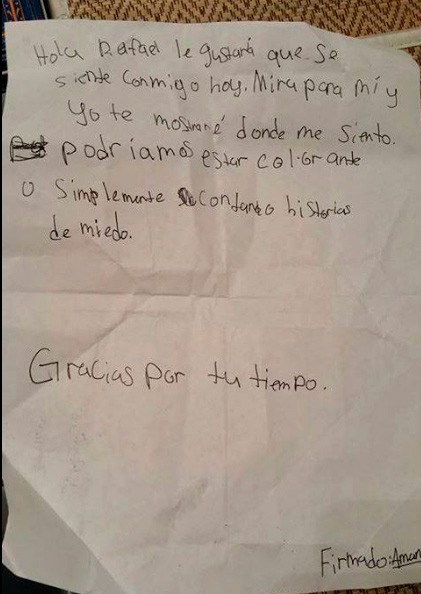 Hola Rafael le gustará que se
siente conmigo hoy. Mira para mí y
yo te mostraré donde me siento.
podriamos estar colorante
o simplemente contando historias
de miedo.
Gracias por tu tiempo.
Firmado: Aman